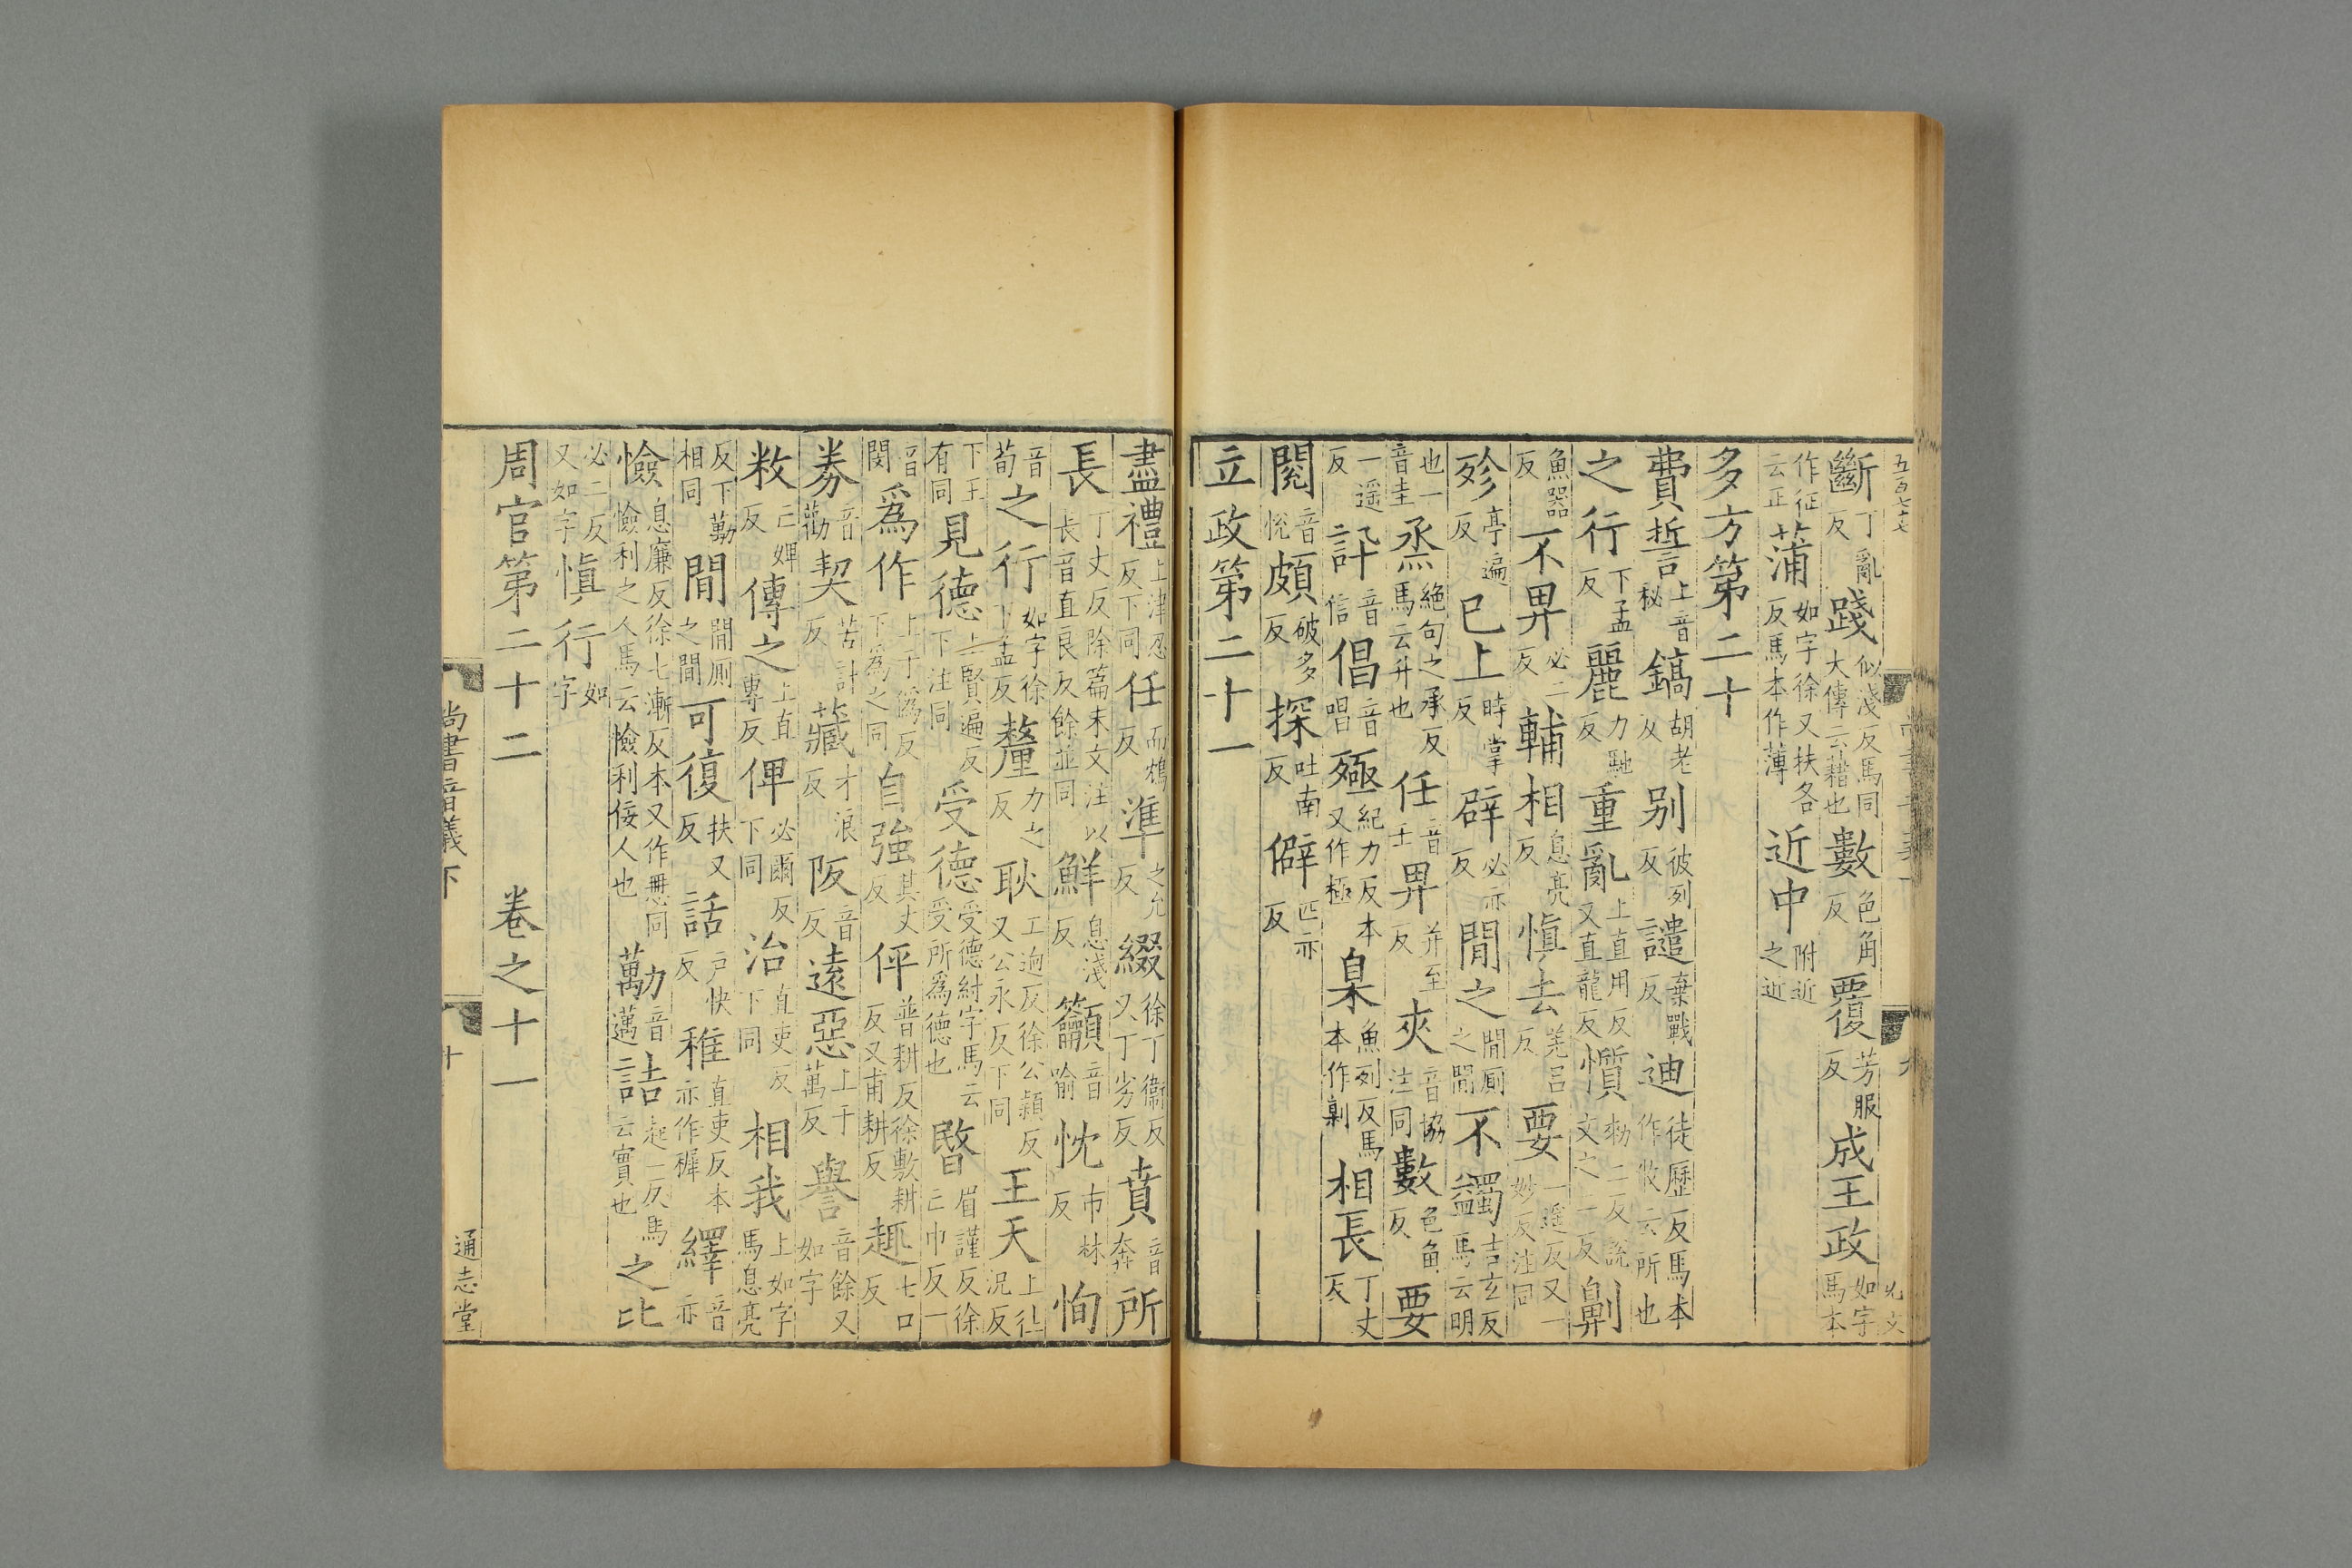 斷丁亂反踐似淺反馬同大傳云藉也數色角反覆芳服反成王政如字馬本
作征云正蒲如字徐又扶各反馬本作薄近中附近之近
多方第二十
費誓上音秘鎬胡老反别彼列反譴棄戰反迪徒歷反馬本作攸云所也
之行下孟反麗力馳反重亂上直用反又直龍反懫勑二反說文之二反劓
魚器反不畀必二反輔相息亮反慎去羌呂反要一遥反又一妙反注同
殄亭遍反已上時掌反辟必亦反間之間厠之間不蠲吉玄反馬云明
也一音圭烝絕句之承反馬云升也任音壬畀并至反夾音協注同數色角反要
一遥反訃音信倡音唱殛紀力反本又作極臬魚列反馬本作劓相長丁丈反
閱音悅頗破多反探吐南反僻匹亦反
立政第二十一
盡禮上津忍反下同任而鴆反準之允反綴徐丁衞反又丁劣反賁音奔所
長丁丈反除篇末文注以長音直良反餘並同鮮息淺反籲音喻忱市林反恂
音荀之行如字徐下孟反釐力之反耿工逈反徐公潁反又公永反下同王天上往况反
下王有同見德上賢遍反下注同受德受德紂字馬云受所為德也暋眉謹反徐亡巾反一
音閔爲作上于僞反下為之同自強其丈反伻普耕反徐敷耕反又甫耕反趣七口反
劵音勸契苦計反藏才浪反阪音反遠惡上于萬反譽音餘又如字
敉亡婢反傳之上直專反俾必爾反下同治直吏反下同相我上如字馬息亮
反下勱相同間間厠之間可復扶又反話户快反稚直吏反本亦作穉繹音亦
憸息廉反徐七漸反本又作𢙾同憸利之人馬云憸利佞人也勱音邁詰起一反馬云實也之比
必二反又如字慎行如字
周官第二十二　卷之十一
尚書音義下　十　通志堂